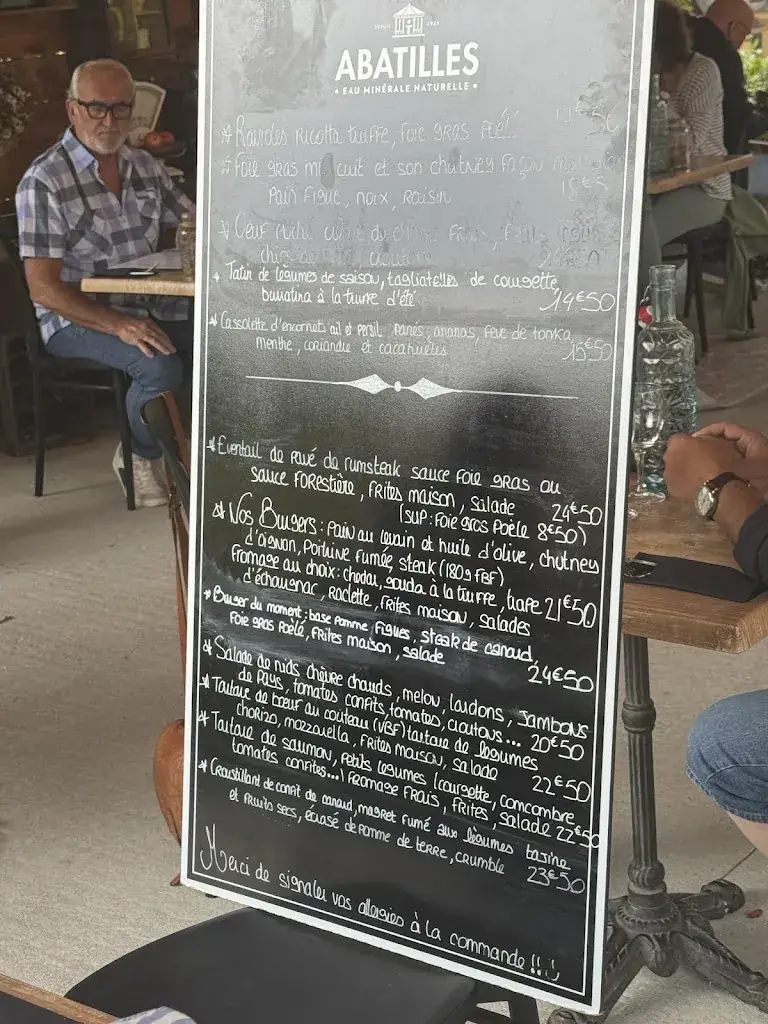 DEPUIS 1925
ABATILLES
• EAU MINÉRALE NATURELLE •
* Ravioles ricotta truffe, foie gras
* Foie gras mi cuit et son chutney façon
pain figue, noix, raisin
* Oeuf
* Tatin de légumes de saison, tagliatelles de courgette,
burratina à la truffe d'été 14€50
* Cassolette d'encornets ail et persil, panés, ananas, feve de tonka,
menthe, coriandre et cacahuètes 15€50
* Eventail de pavé de rumsteak sauce foie gras ou
sauce forestière, frites maison, salade 24€50
(SUP : Foie gras Poêlé 8€50)
* Vos Burgers : Pain au levain et huile d'olive, chutney
d'oignon, Poitrine fumée, steak (180g FBF)
fromage au choix : chedar, gouda à la truffe, trape
d'échourgnac, raclette, frites maison, salades 21€50
* Burger du moment : base pomme, figues, steak de canard,
foie gras poêlé, frites maison, salade 24€50
* Salade de nids chèvre chauds, melon, lardons, jambons
de pays, tomates confits, tomates, croutons... 20€50
* Tartare de bœuf au couteau (VBF) tartare de légumes
chorizo, mozzarella, frites maison, salade 22€50
* Tartare de saumon, petits légumes (courgette, concombre
tomates confites...) fromage frais, frites, salade 22€50
* Croustillant de confit de canard, magret fumé aux légumes tagine
et fruits secs, écrasé de pomme de terre, crumble 23€50
Merci de signaler vos allergies à la commande !! :)